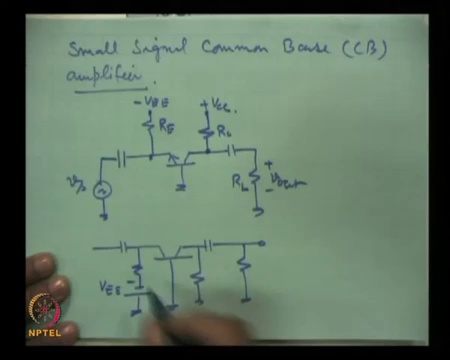 Small Signal Common Base (CB)
amplifier.
- VEE
+ VCC
RE
RL
vs
RL
+
vout
-
VEE
-
NPTEL